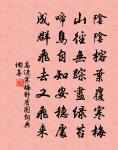 陰陰榕葉覆寒梅
山徑無踪盡綠苔
啼鳥自知安穩處
成群飛去又飛來